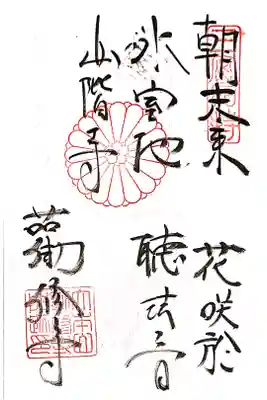 朝末来 花咲於
氷室池 聴法音
山階寺 勧修寺